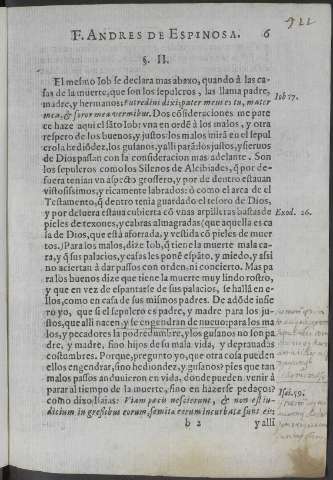 922
F. ANDRES DE ESPINOSA. 6
§. II.
El mesmo Iob se declara mas abaxo, quando à las ca-
sas de la muerte, que son los sepulcros, las llama padre,
madre, y hermanos: Putredini dixi; pater meus es tu, mater
mea, & soror mea vermibus. Dos cõsideraciones me pare
ce haze aqui el sãto Iob: vna en ordẽ à los malos, y otra
respeto de los buenos, y justos: los malos mirã en el sepul
cro la hediõdez, los gusanos, y alli parã: los justos, y sieruos
de Dios passan con la consideracion mas adelante. Son
los sepulcros como los Silenos de Alcibiades, q̃ por de-
fuera tenian vn aspecto grossero, y por de dentro estauan
vistosissimos, y ricamente labrados: ò como el arca de el
Testamento, q̃ dentro tenia guardado el tesoro de Dios,
y por defuera estaua cubierta cõ vnas arpilleras bastas de
pieles de texones, y cabras almagradas (que aquella es ca
sa de Dios, que està aforrada, y vestida cõ pieles de muer
tos.) Para los malos, dize Iob, q̃ tiene la muerte mala ca-
ra, y q̃ sus palacios, y casas les ponẽ espãto, y miedo, y assi
no aciertan à dar passos con orden, ni concierto. Mas pa
ra los buenos dize que tiene la muerte muy lindo rostro,
y que en vez de espantarse de sus palacios, se hallã en e-
llos, como en casa de sus mismos padres. De adõde infie
ro yo, que si el sepulcro es padre, y madre para los ju-
stos, que alli nacen, y se engendran de nueuo: para los ma
los, y pecadores la podredumbre, y los gusanos no son pa
dre, y madre, sino hijos de su mala vida, y deprauadas
costumbres. Porque, pregunto yo, que otra cosa pueden
ellos engendrar, sino hediondez, y gusanos? pies que tan
malos passos anduuieron en vida, donde pueden venir à
parar al tiempo de la muerte, sino en hazerse pedaços?
como dixo Isaias: Viam pacis nescierunt, & non est iu-
dicium in gressibus eorum, semita eorum incurbatæ sunt eis:
b 2 y alli
Iob 17.
Exod. 26.
Isai. 59.